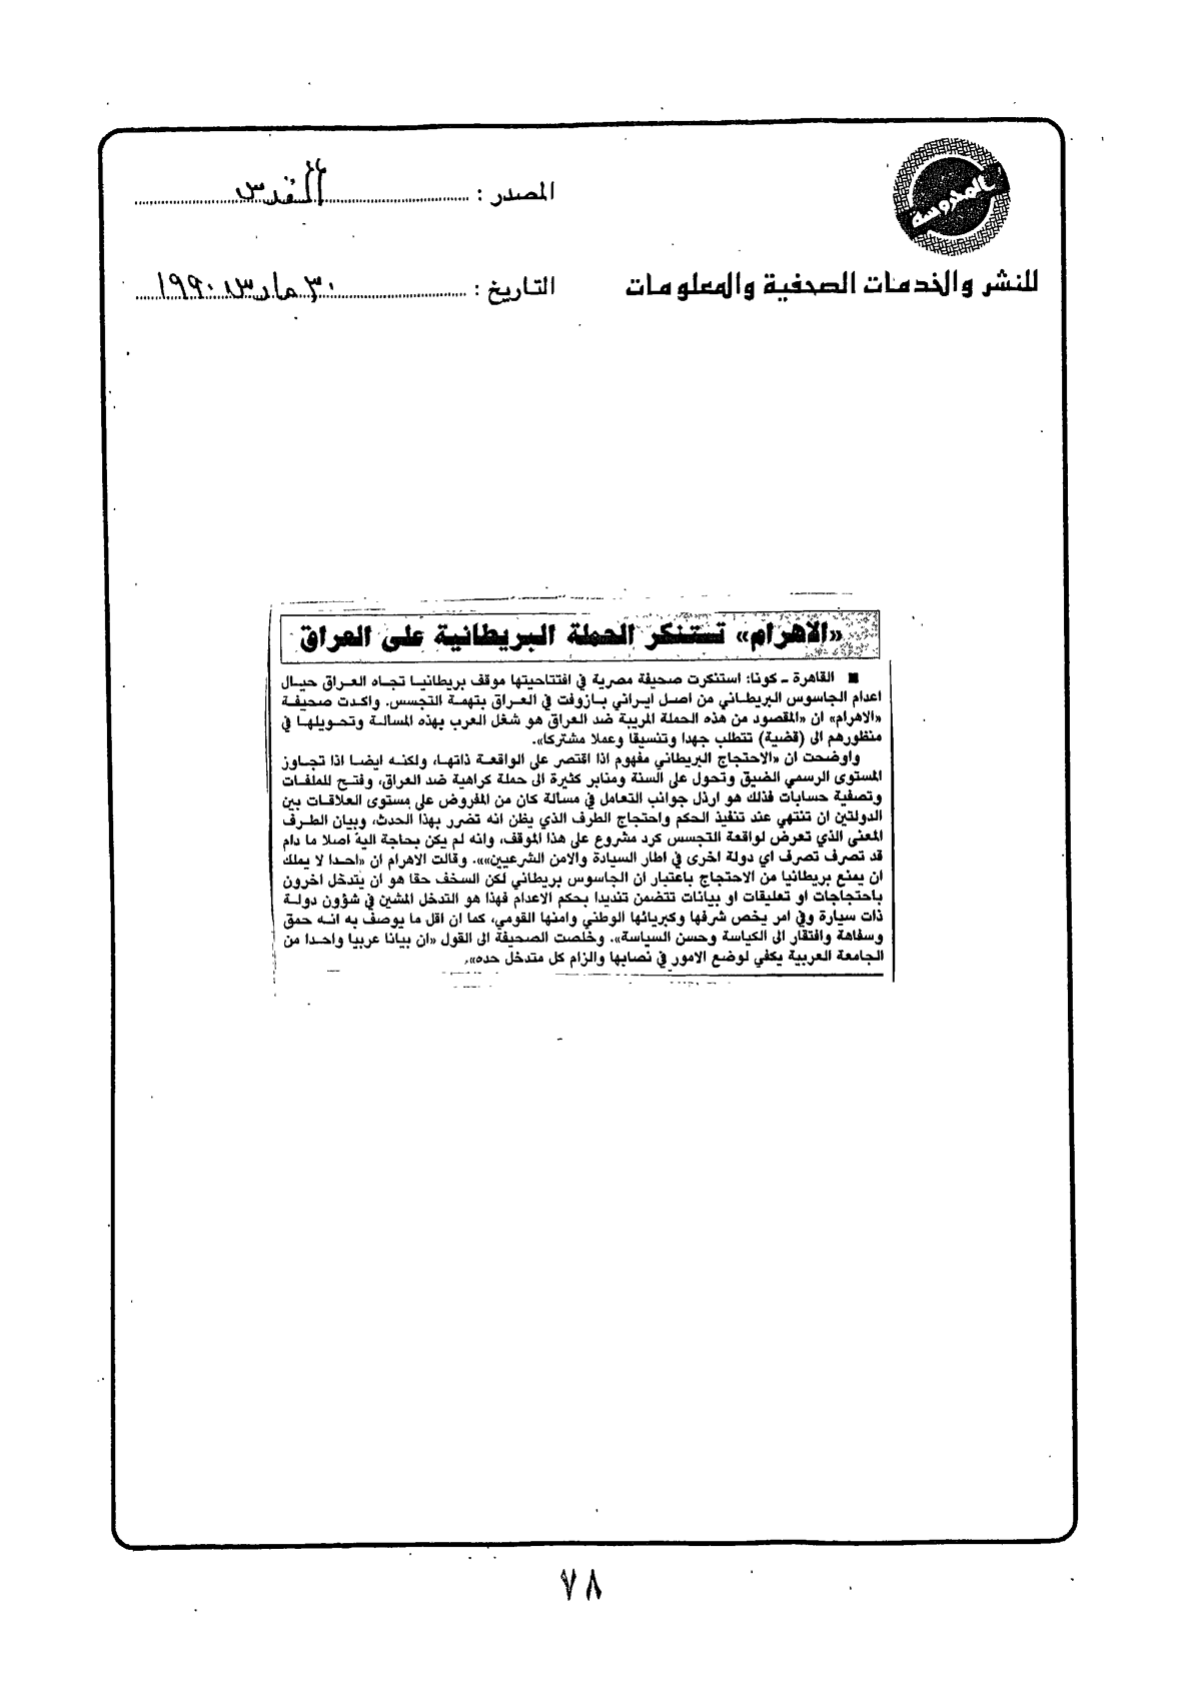 المحروسة
المصدر : القدس
للنشر والخدمات الصحفية والمعلومات
التاريخ : ٣٠ مارس ١٩٩٠
«الاهرام» تستنكر الحملة البريطانية على العراق
■ القاهرة ـ كونا: استنكرت صحيفة مصرية في افتتاحيتها موقف بريطانيا تجاه العراق حيال
اعدام الجاسوس البريطاني من اصل ايراني بازوفت في العراق بتهمة التجسس. واكدت صحيفة
«الاهرام» ان «المقصود من هذه الحملة المريبة ضد العراق هو شغل العرب بهذه المسالة وتحويلها في
منظورهم الى (قضية) تتطلب جهدا وتنسيقا وعملا مشتركا».
واوضحت ان «الاحتجاج البريطاني مفهوم اذا اقتصر على الواقعة ذاتها، ولكنه ايضا اذا تجاوز
المستوى الرسمي الضيق وتحول على السنة ومنابر كثيرة الى حملة كراهية ضد العراق، وفتح للملفات
وتصفية حسابات فذلك هو ارذل جوانب التعامل في مسالة كان من المفروض على مستوى العلاقات بين
الدولتين ان تنتهي عند تنفيذ الحكم واحتجاج الطرف الذي يظن انه تضرر بهذا الحدث، وبيان الطرف
المعنى الذي تعرض لواقعة التجسس كرد مشروع على هذا الموقف، وانه لم يكن بحاجة اليه اصلا ما دام
قد تصرف تصرف اي دولة اخرى في اطار السيادة والامن الشرعيين»». وقالت الاهرام ان «احدا لا يملك
ان يمنع بريطانيا من الاحتجاج باعتبار ان الجاسوس بريطاني لكن السخف حقا هو ان يتدخل اخرون
باحتجاجات او تعليقات او بيانات تتضمن تنديدا بحكم الاعدام فهذا هو التدخل المشين في شؤون دولة
ذات سيارة وفي امر يخص شرفها وكبريائها الوطني وامنها القومي، كما ان اقل ما يوصف به انه حمق
وسفاهة وافتقار الى الكياسة وحسن السياسة». وخلصت الصحيفة الى القول «ان بيانا عربيا واحدا من
الجامعة العربية يكفي لوضع الامور في نصابها والزام كل متدخل حده».
٧٨